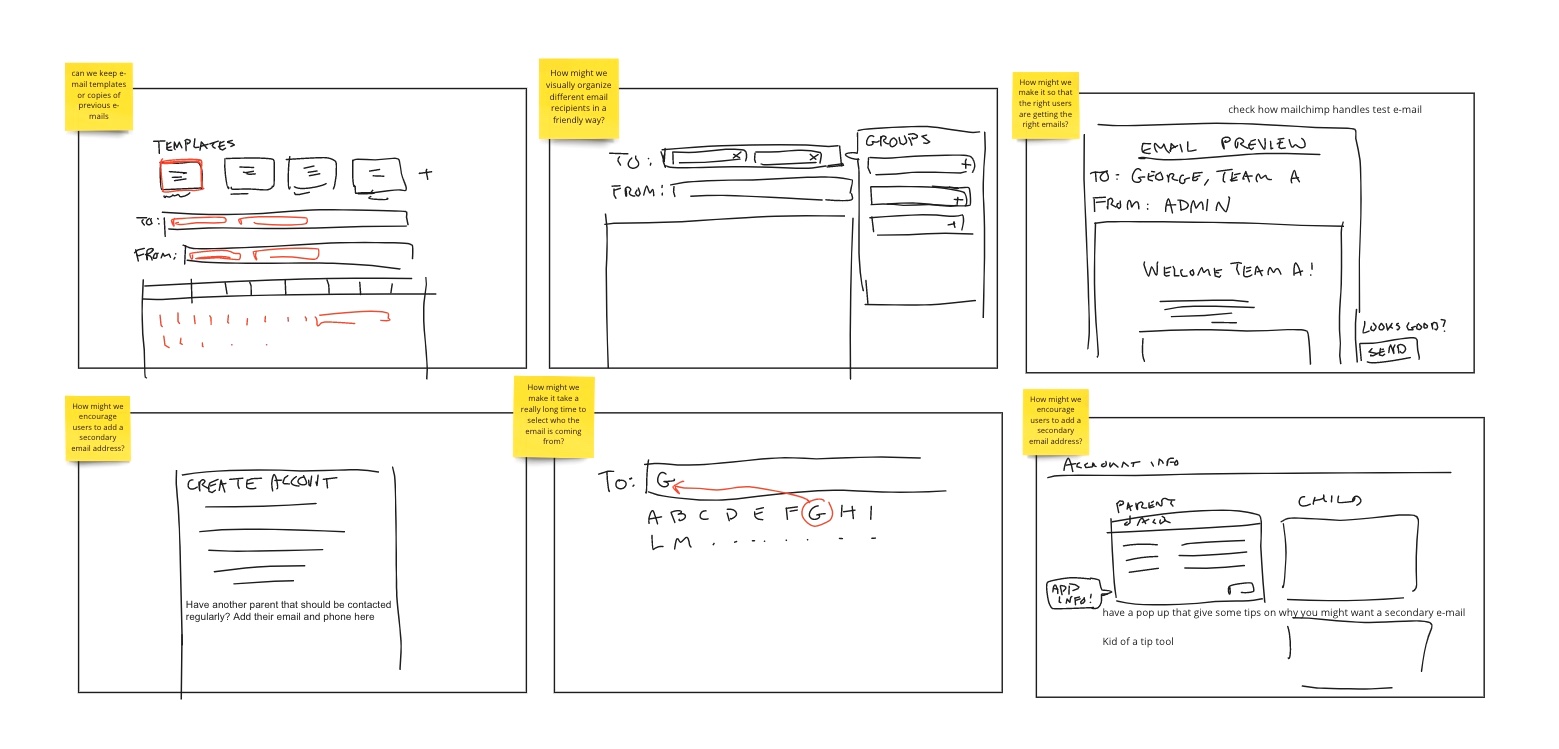 can we keep e-
mail templates
or copies of
previous e-
mails
TEMPLATES
+
TO:
FROM:
How might we
visually organize
different email
recipients in a
friendly way?
TO:
x
x
FROM:
GROUPS
+
+
+
How might we
make it so that
the right users
are getting the
right emails?
check how mailchimp handles test e-mail
EMAIL PREVIEW
TO: GEORGE, TEAM A
FROM: ADMIN
WELCOME TEAM A!
LOOKS GOOD?
SEND
How might we
encourage
users to add a
secondary
email address?
CREATE ACCOUNT
Have another parent that should be contacted
regularly? Add their email and phone here
How might we
make it take a
really long time to
select who the
email is coming
from?
To: G
A B C D E F G H I
L M . . . . . . . . .
How might we
encourage
users to add a
secondary
email address?
ACCOUNT INFO
PARENT
CHILD
ADD
INFO!
have a pop up that give some tips on why you might want a secondary e-mail
Kid of a tip tool